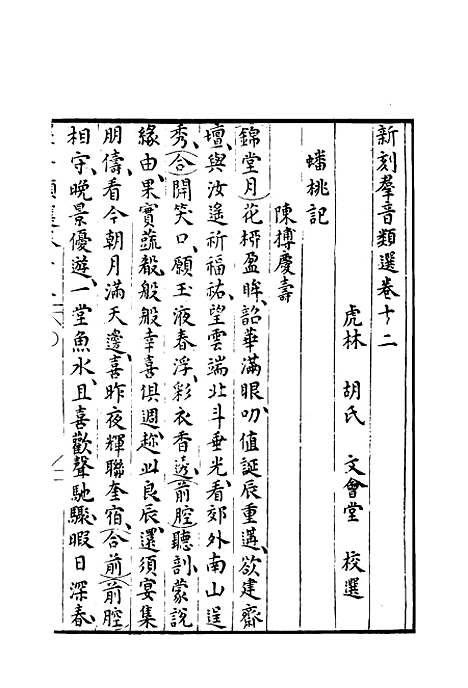 新刻羣音類選卷十二
虎林 胡氏 文會堂 校選
蟠桃記
陳摶慶壽
錦堂月)花柳盈眸、韶華滿眼、叨值誕辰重遘、欲建齋
壇、與汝遙祈福祐、望雲端北斗垂光、看郊外南山逞
秀、(合)開笑口、願玉液春浮、彩衣香透、(前腔)聽剖、蒙說
緣由、果實蔬殽、般般幸喜俱週、趂此良辰、還須宴集
朋儔、看今朝月滿天邊、喜昨夜輝聯奎宿、(合前)(前腔)
相守、晚景優遊、一堂魚水、且喜歡聲馳驟、暇日深春、